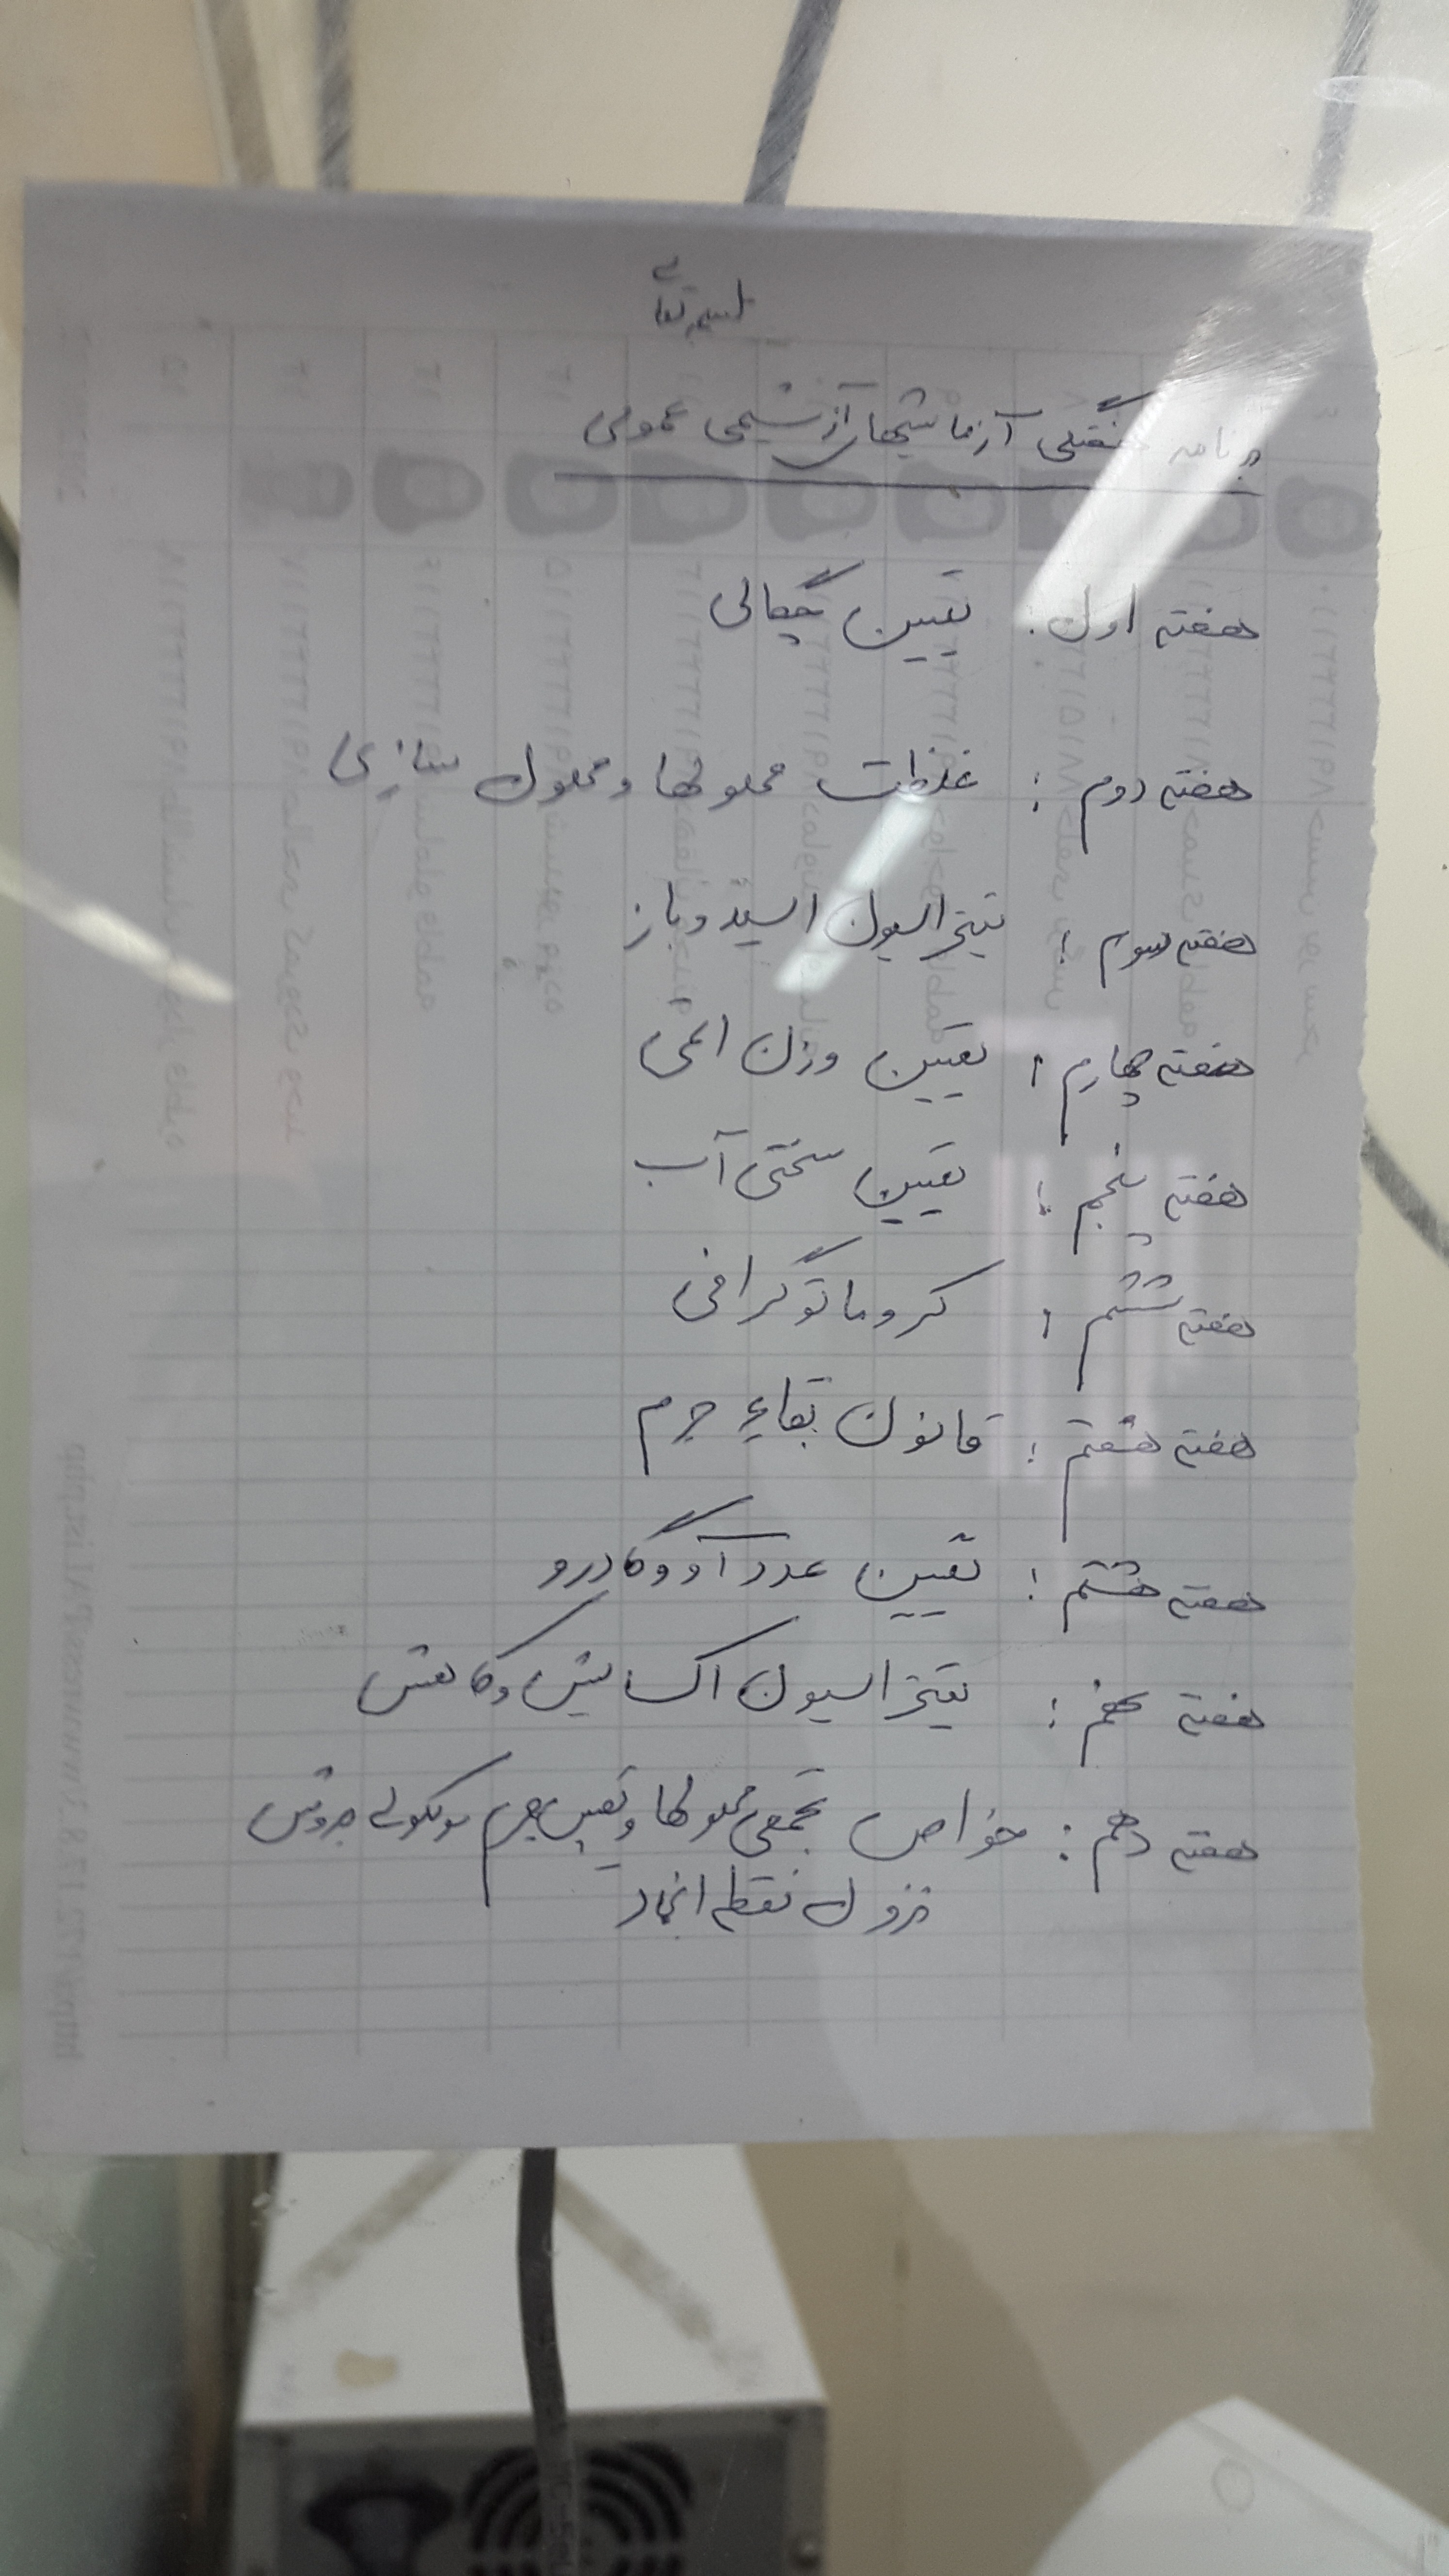 بسمه تعالی
برنامه هفتگی آزمایشهای آز شیمی عمومی
هفته اول: تعیین چگالی
هفته دوم: غلظت محلولها و محلول سازی
هفته سوم: تیتراسیون اسید و باز
هفته چهارم: تعیین وزن اتمی
هفته پنجم: تعیین سختی آب
هفته ششم: کروماتوگرافی
هفته هفتم: قانون بقاء جرم
هفته هشتم: تعیین عدد آووگادرو
هفته نهم: تیتراسیون اکسایش و کاهش
هفته دهم: خواص تجمعی محلولها و تعیین جرم مولکولی بروش
نزول نقطه انجماد